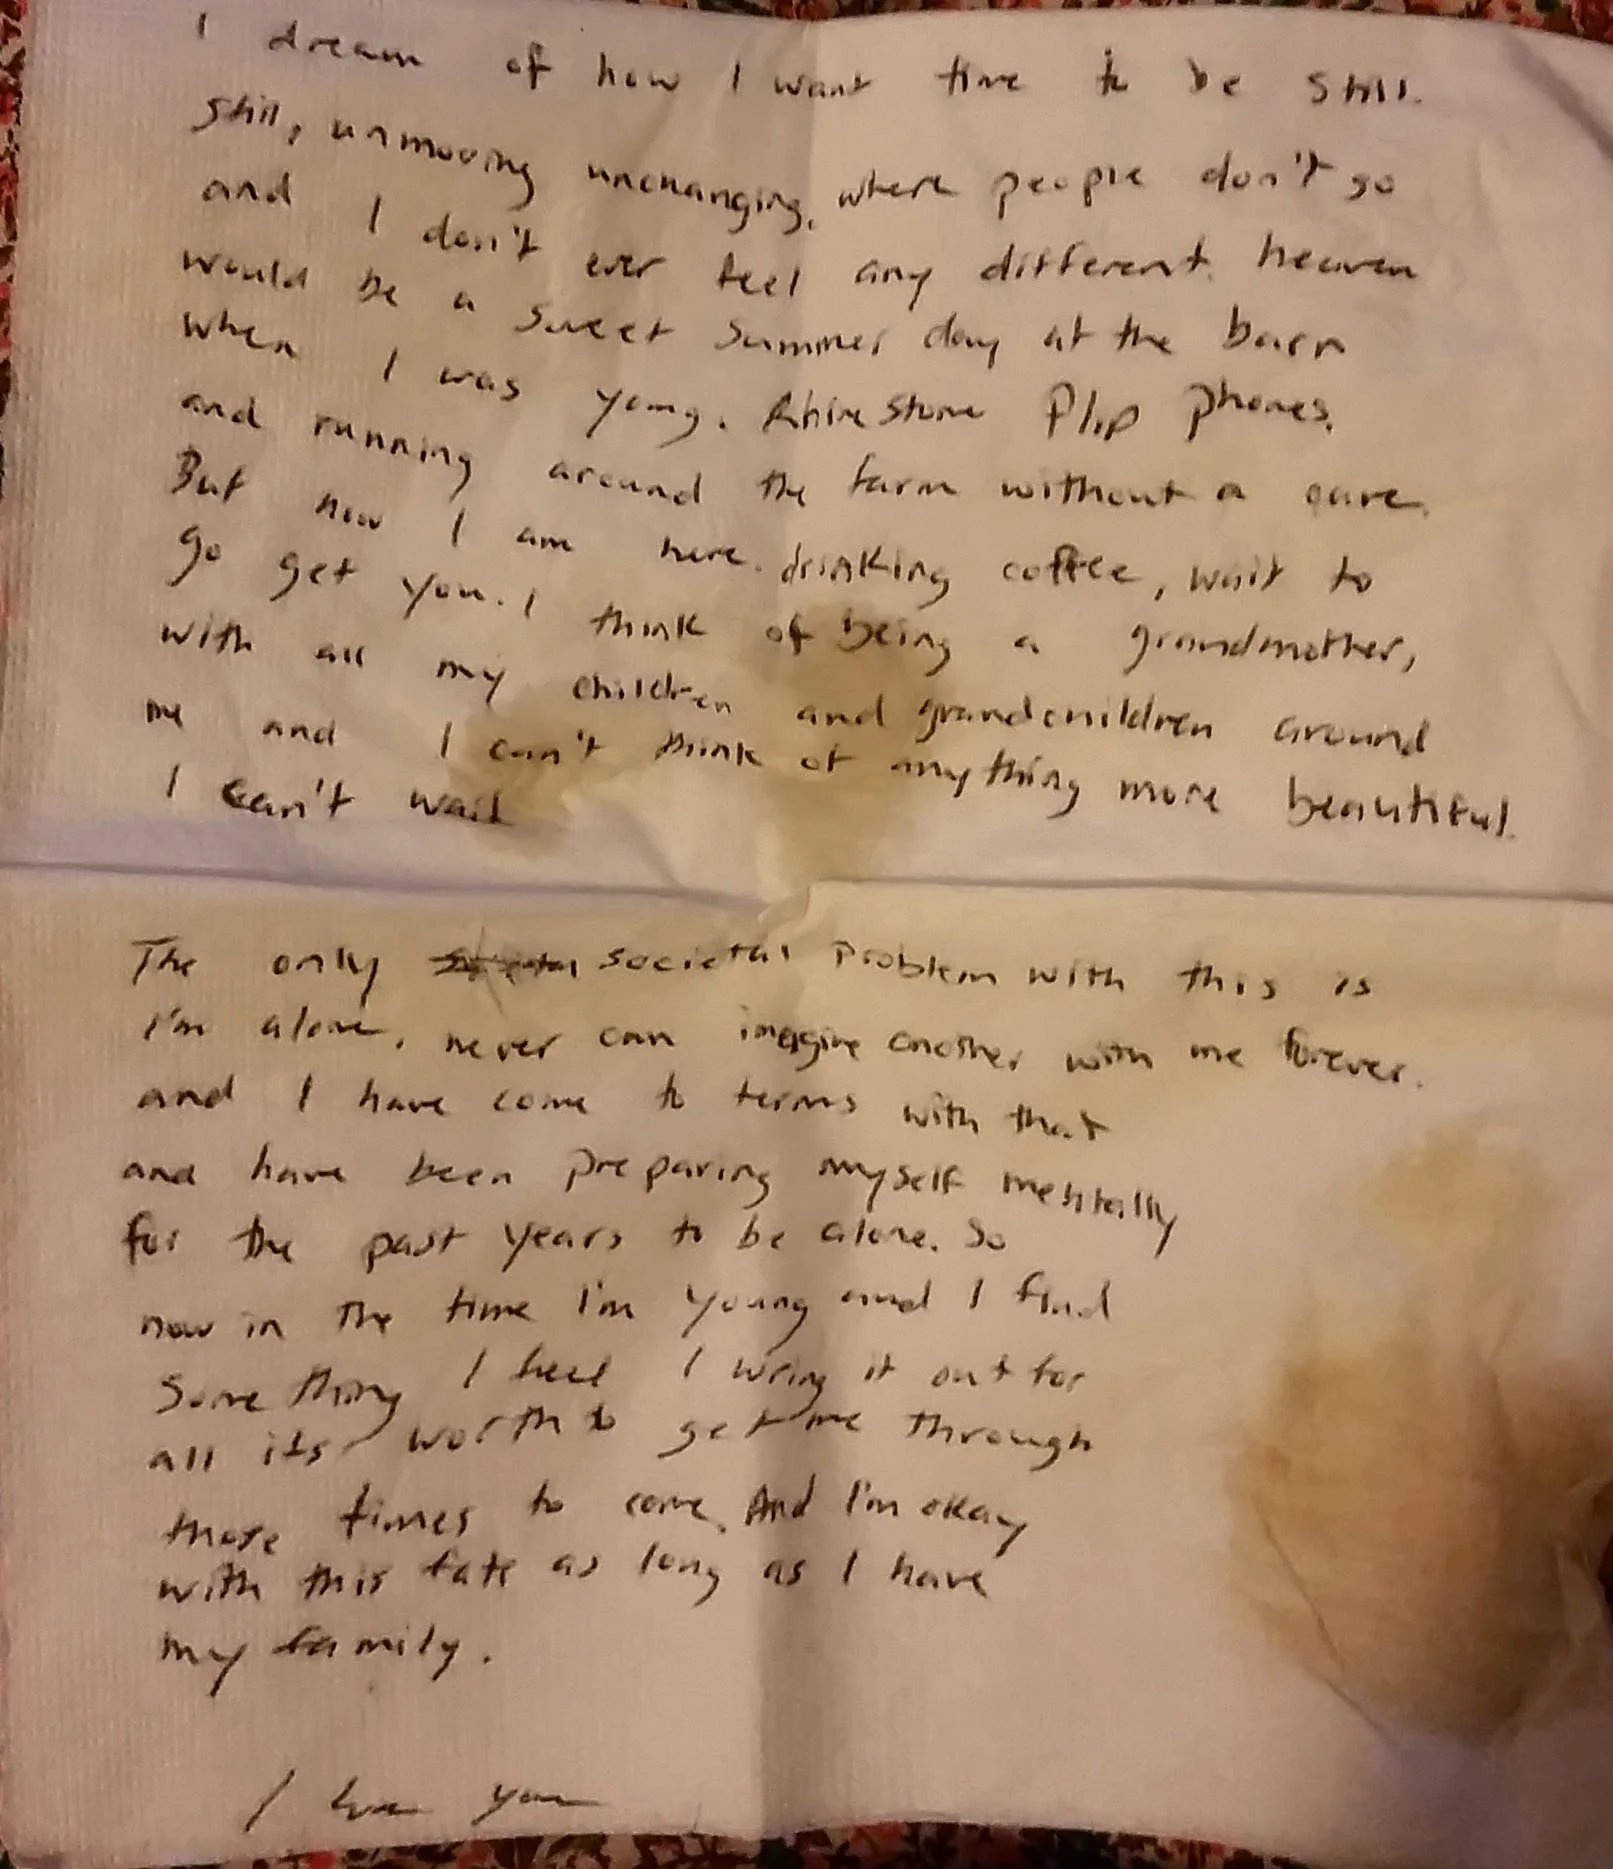 I dream of how I want time to be still.
Still, unmoving unchanging, where people don't go
and I don't ever feel any different. heaven
would be a sweet summer day at the barn
when I was young. Rhinestone Flip phones.
and running around the farm without a care.
But now I am here. drinking coffee, wait to
go get you. I think of being a grandmother,
with all my children and grandchildren around
me and I can't think of anything more beautiful.
I can't wait
The only societal problem with this is
I'm alone. never can imagine another with me forever.
and I have come to terms with that
and have been preparing myself mentally
for the past years to be alone. So
now in the time I'm young and I find
something I feel I wring it out for
all its worth to get me through
those times to come. And I'm okay
with this fate as long as I have
my family.
I love you